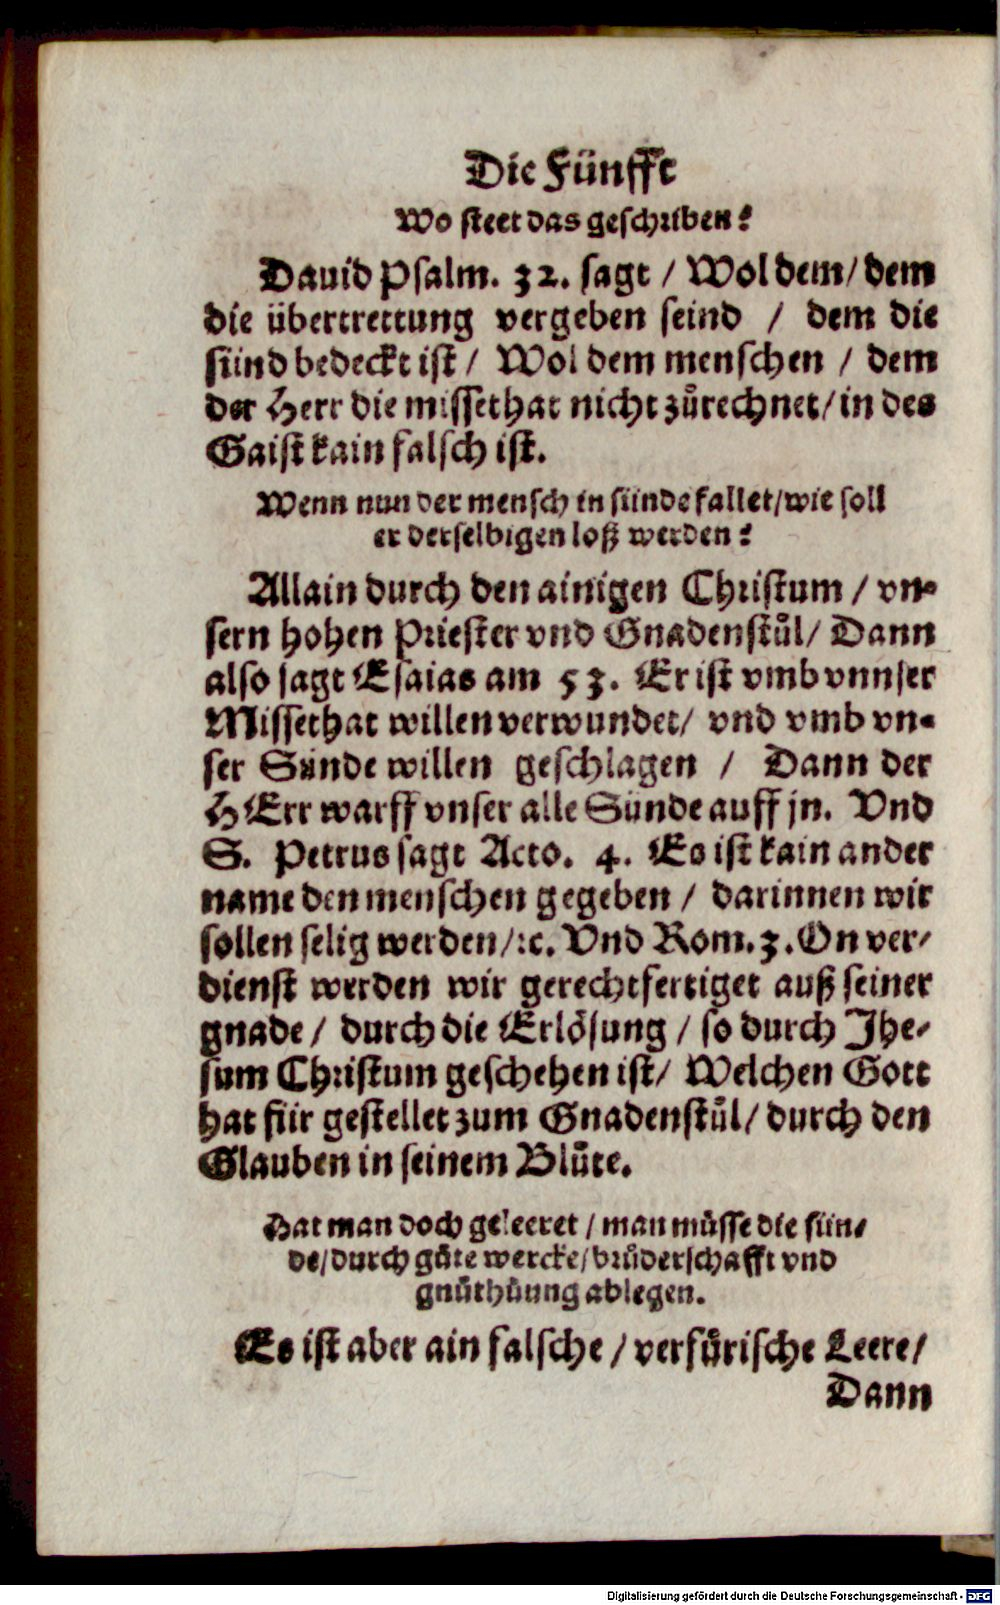 Die Fünfft
Wo steet das geschriben?
Dauid Psalm. 32. sagt / Wol dem / dem
die übertrettung vergeben seind / dem die
sünd bedeckt ist / Wol dem menschen / dem
der Herr die missethat nicht zůrechnet / in des
Gaist kain falsch ist.
Wenn nun der mensch in sünde fallet / wie soll
er derselbigen loß werden?
Allain durch den ainigen Christum / vn-
sern hohen Priester vnd Gnadenstůl / Dann
also sagt Esaias am 53. Er ist vmb vnnser
Missethat willen verwundet / vnd vmb vn-
ser Sünde willen geschlagen / Dann der
HErr warff vnser alle Sünde auff jn. Vnd
S. Petrus sagt Acto. 4. Es ist kain ander
name den menschen gegeben / darinnen wir
sollen selig werden /ꝛc. Vnd Rom. 3. On ver-
dienst werden wir gerechtfertiget auß seiner
gnade / durch die Erlösung / so durch Jhe-
sum Christum geschehen ist / Welchen Gott
hat für gestellet zum Gnadenstůl / durch den
Glauben in seinem Blůte.
Hat man doch geleeret / man müsse die sün-
de / durch gůte wercke / brůderschafft vnd
gnůthůung ablegen.
Es ist aber ain falsche / verfůrische Leere /
Dann
Digitalisierung gefördert durch die Deutsche Forschungsgemeinschaft - DFG